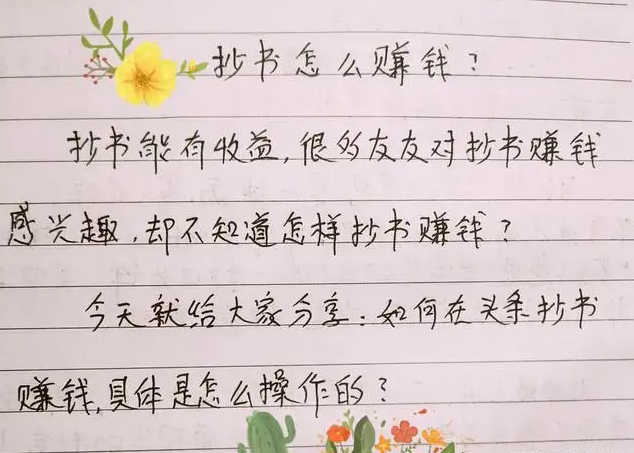 抄书怎么赚钱？
抄书能有收益,很多友友对抄书赚钱
感兴趣,却不知道怎样抄书赚钱？
今天就给大家分享:如何在头条抄书
赚钱,具体是怎么操作的？